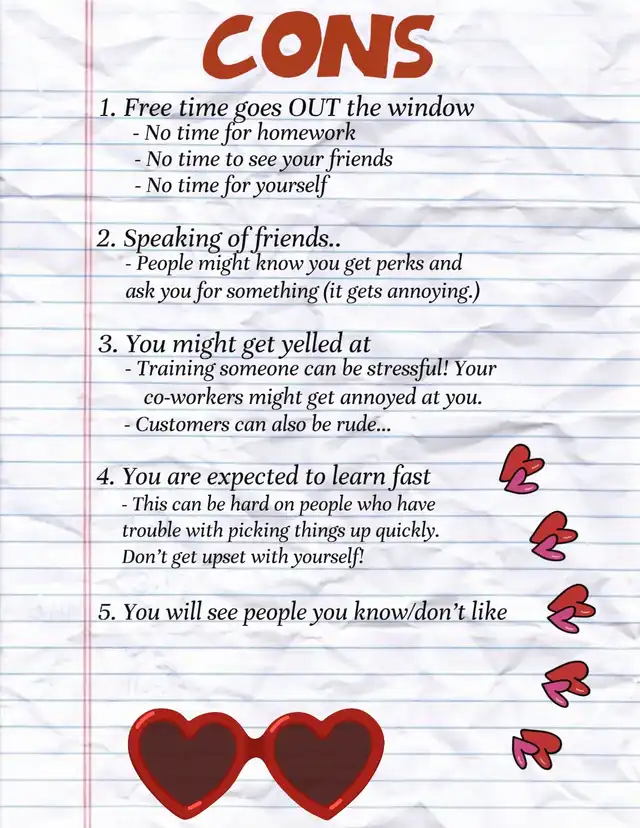 CONS
1. Free time goes OUT the window
- No time for homework
- No time to see your friends
- No time for yourself
2. Speaking of friends..
- People might know you get perks and
ask you for something (it gets annoying.)
3. You might get yelled at
- Training someone can be stressful! Your
co-workers might get annoyed at you.
- Customers can also be rude...
4. You are expected to learn fast
- This can be hard on people who have
trouble with picking things up quickly.
Don't get upset with yourself!
5. You will see people you know/don't like